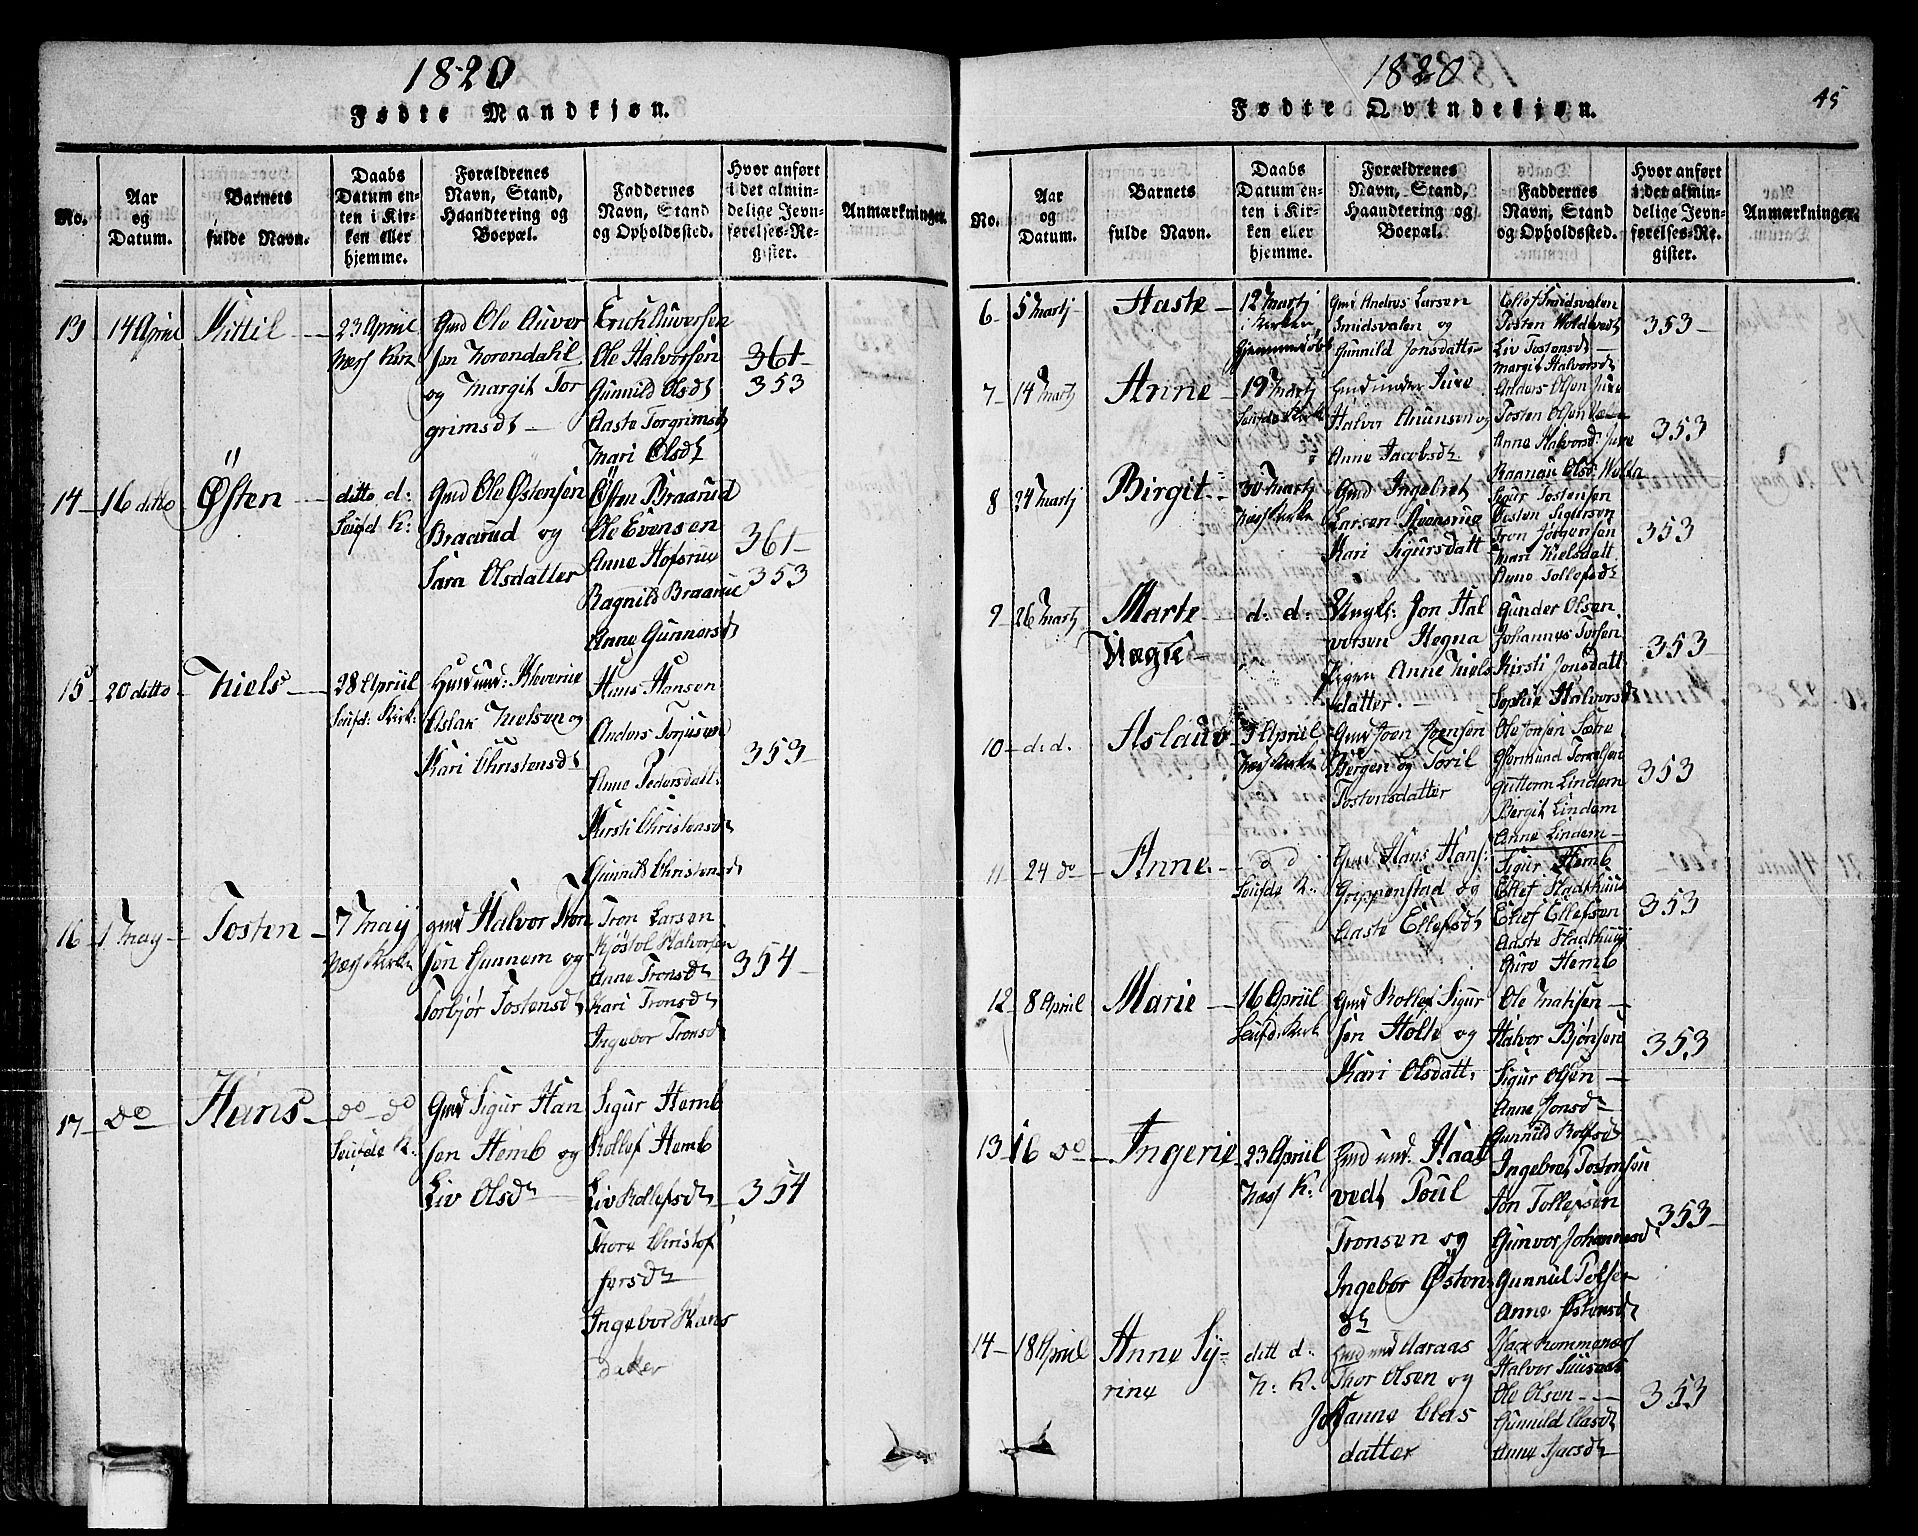 1820
Fødte Mandkjøn.
No.
Aar og Datum.
Barnets fulde Navn.
Daabs Datum enten i Kirken eller hjemme.
Forældrenes Navn, Stand, Haandtering og Boepæl.
Faddernes Navn, Stand og Opholdssted.
Hvor anført i det almindelige Jevnførelses-Register.
Anmærkninger.
13
14 April
Kittil
23 Apriil
Næss Kirk
Gmd Ole Auver
sen Norendahl
og Margit Tor
grimsdt
Erich Auversen
Ole Halvorsen
Gunnild Olsdt
Aaste Torgrimsdt
Mari Olsdt
361
353
14
16 ditto
Østen
ditto d:
Gmd Ole Østensen
Braarud og
Sara Olsdatter
Østen Braarud
Ole Evensen
Anne Hofsrue
Ragnild Braarue
Anne Gunnersdt
361
353
15
20 ditto
Niels
28 Apriil
Husd und: Kloverue
Aslak Nielsen og
Kari Christensdt
Hans Hansen
Anders Torjusen
Anne Pedersdatt:
Kirsti Christensdt
Gunnild Christensdt
353
16
1 May
Tosten
7 May
Næss Kirke
gmd Halvor Tron
sen Gunnem og
Torbjør Tostensdt
Tron Larsen
Kjøstol Halvorsen
Anne Tronsdt
Kari Tronsdt
Ingebor Tronsdt
354
17
do
Hans
do do
Gmd Sigur Han
sen Hemb og
Liv Olsdtr
Sigur Hemb
Rollef Hemb
Liv Rollefsdtr
Thore Christof
fersdtr
Ingebor Hans
datter
354
1820
45
Fødte Qvindekjøn.
No.
Aar og Datum.
Barnets fulde Navn.
Daabs Datum enten i Kirken eller hjemme.
Forældrenes Navn, Stand, Haandtering og Boepæl.
Faddernes Navn, Stand og Opholdssted.
Hvor anført i det almindelige Jevnførelses-Register.
Anmærkninger.
6
5 Martj
Aaste
12 Martj
i Kirken
Gmd Andres Larsen
Smidsvalen og
Gunnild Jonsdatter
Ellef Smidsvalen
Tosten Holdevedt
Liv Tostensdt
Margit Halvorsdt
353
7
14 Martj
Anne
19 Martj
Gmd under Jure
Halvor Anunsen og
Anne Jacobsdt.
Anders Olsen Jure
Tosten Olsen
Anne Halvorsd: Jure
353
8
24 Martj
Birgit
30 Martj
Næss Kirke
Gmd Ingebret
Larsen
Kari Sigursdatt
Sigur Tostensen
Tosten Sigursen
Tron Jørgensen
Mari Nielsdatt
Anne Tollefsdt
353
9
26 Martj
Marte
d: d:
Ungk: Jon Hal
vorsen Hegna
Pigen Anne Niels
datter.
Gunder Olsen
Johannes Torsen
Kirsti Jonsdatt
Sophie Halvorsdt
353
10
d: d.
Aslaug
3 Apriil
Næss Kirke
Gmd Joen Joensen
Bergen og Toril
Tostensdatter
Ole Jonsen
Gormund Torkelsen
Guttorm Lindem
Bergit Lindem
Anne Lindem
353
11
24 do
Anne
d d
Gmd Hans Hans:
Grippenstad og
Aaste Ellefsdt
Sigur Hemb
Ellef Stadshuus
Ellef Ellefsen
Aaste Stadshuus
Guro Hemb
353
12
8 Apriil
Marie
16 Apriil
Gmd Rollef Sigur
sen Holte og
Kari Olsdatt:
Ole Matisen
Halvor Bjønsen
Sigur Olsen
Anne Jonsdtr
Gunnild Rolfsdt
353
13
16 do
Ingerie
23 Apriil
Næss K:
Gmd und: Haat
vedt Poul
Tronsen og
Ingebor Østens
dtr
Ingebret Tostensen
Jon Tollefsen
Gunvor Johannesd
Anne Østensdt
353
14
18 Apriil
Anne Sy-
rine
ditt d:
N: K:
Gmd und Aaraas
Thor Olsen og
Johanne Clas
datter
Ole Olsen
Gunnild Clasdt
353